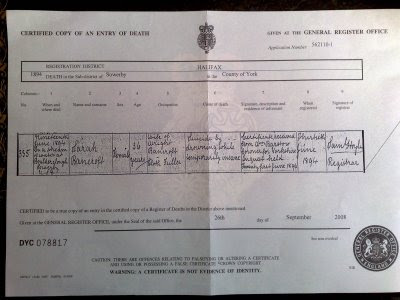 CERTIFIED COPY OF AN ENTRY OF DEATH
GIVEN AT THE GENERAL REGISTER OFFICE
Application Number 562110-1
REGISTRATION DISTRICT HALIFAX
1894 DEATH in the Sub-district of Sowerby in the County of York
Columns:- 1 2 3 4 5 6 7 8 9
No. When and where died Name and surname Sex Age Occupation Cause of death Signature, description and residence of informant When registered Signature of registrar
355
Nineteenth June 1894
Sarah Bancroft
Female
36 years
Wife of Wright Bancroft
Fuller
Suicide by drowning while temporarily insane
Certificate received from Barstow Coroner for Yorkshire Inquest held Twenty first June 1894
June 1894
Registrar
CERTIFIED to be a true copy of an entry in the certified copy of a Register of Deaths in the District above mentioned.
Given at the GENERAL REGISTER OFFICE, under the Seal of the said Office, the 26th day of September 2008
DYC 078817
See note overleaf
CAUTION: THERE ARE OFFENCES RELATING TO FALSIFYING OR ALTERING A CERTIFICATE
AND USING OR POSSESSING A FALSE CERTIFICATE ©CROWN COPYRIGHT
WARNING: A CERTIFICATE IS NOT EVIDENCE OF IDENTITY.
GENERAL REGISTER OFFICE
ENGLAND